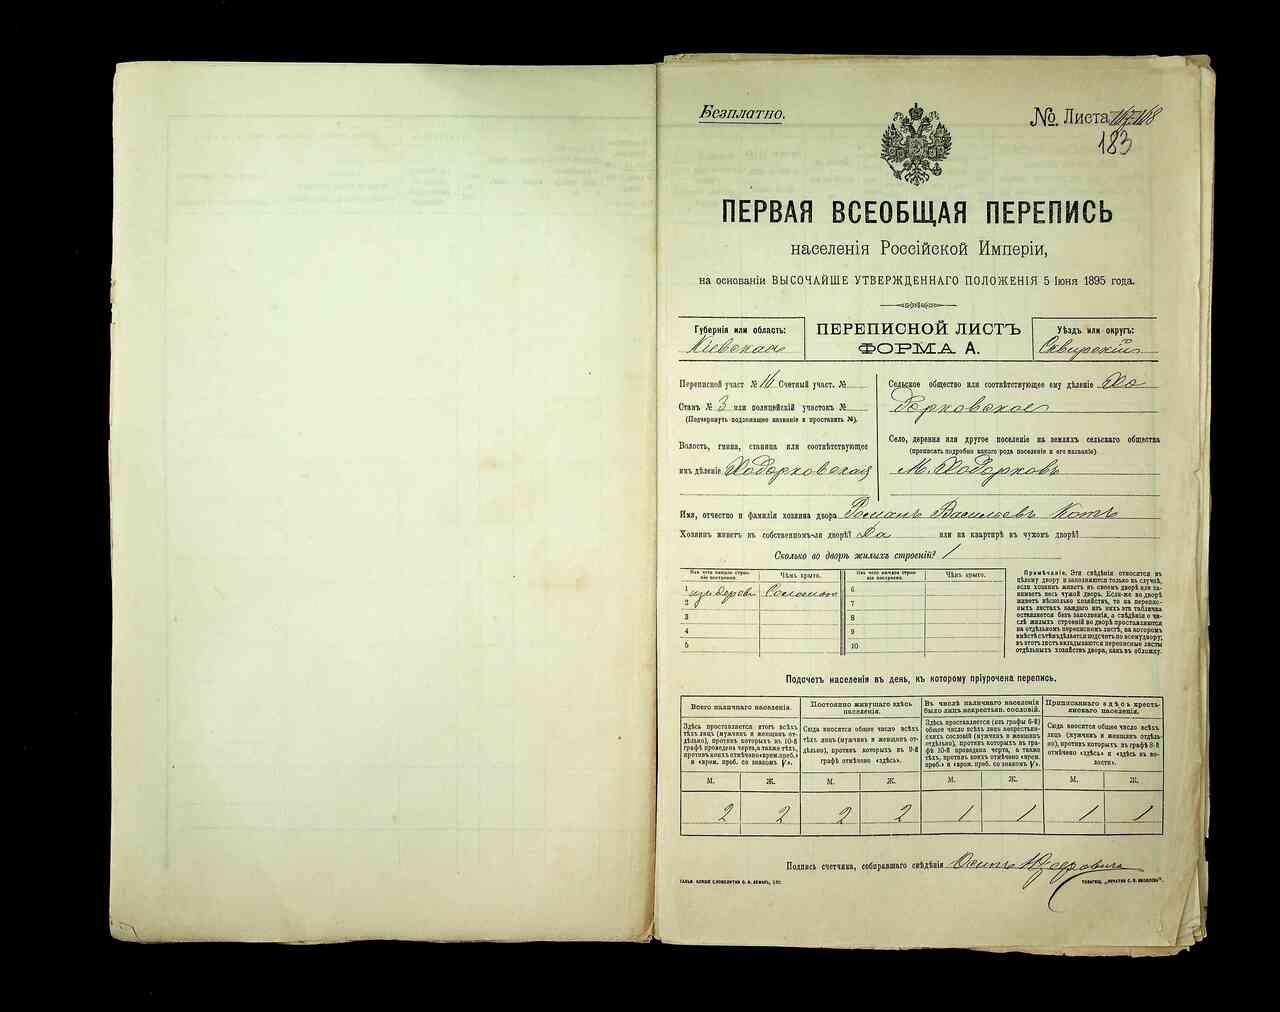 Безплатно.
№ Листа
183
ПЕРВАЯ ВСЕОБЩАЯ ПЕРЕПИСЬ
населенія Россійской Имперіи,
на основаніи ВЫСОЧАЙШЕ УТВЕРЖДЕННАГО ПОЛОЖЕНІЯ 5 Іюня 1895 года.
Губернія или область:
Кіевская
ПЕРЕПИСНОЙ ЛИСТЪ
ФОРМА А.
Уѣздъ или округъ:
Сквирскій
Переписной участ № 16 Счетный участ. №
Станъ № 3 или полицейскій участокъ №
(Подчеркнуть подлежащее названіе и проставить №).
Волость, гмина, станица или соотвѣтствующее
имъ дѣленіе Ходорковская
Сельское общество или соотвѣтствующее ему дѣленіе Хо
дорковское
Село, деревня или другое поселеніе на земляхъ сельскаго общества
(прописать подробно какого рода поселеніе и его названіе)
М. Ходорковъ
Имя, отчество и фамилія хозяина двора Романъ Васильевъ Котъ
Хозяинъ живетъ въ собственномъ-ли дворѣ? Да или на квартирѣ въ чужомъ дворѣ?
Сколько во дворѣ жилыхъ строеній? 1
Изъ чего каждое строеніе построено.
Чѣмъ крыто.
Изъ чего каждое строеніе построено.
Чѣмъ крыто.
1 изъ дерева Соломою 6
2 7
3 8
4 9
5 10
Примѣчаніе. Эти свѣдѣнія относятся къ
цѣлому двору и заполняются только въ случаѣ,
если хозяинъ живетъ въ своемъ дворѣ или занимаетъ
весь чужой дворъ. Если-же во дворѣ
живетъ нѣсколько хозяйствъ, то на переписныхъ
листахъ каждаго изъ нихъ эта табличка
оставляется безъ заполненія, а свѣдѣнія о числѣ
жилыхъ строеній во дворѣ проставляются
на отдѣльномъ переписномъ листѣ, на которомъ
вмѣстѣ съ тѣмъ дѣлается подсчетъ по всему двору;
въ этотъ листъ вкладываются переписные листы
отдѣльныхъ хозяйствъ двора, какъ въ обложку.
Подсчетъ населенія въ день, къ которому пріурочена перепись.
Всего наличнаго населенія.
Здѣсь проставляется итогъ всѣхъ
тѣхъ лицъ (мужчинъ и женщинъ отдѣльно),
противъ которыхъ въ 10-й
графѣ проведена черта, а также тѣхъ,
противъ коихъ отмѣчено «врем. преб.»
и «врем. преб. со знакомъ V».
Постоянно живущаго здѣсь
населенія.
Сюда вносится общее число всѣхъ
тѣхъ лицъ (мужчинъ и женщинъ отдѣльно),
противъ которыхъ въ 9-й
графѣ отмѣчено «здѣсь».
Въ числѣ наличнаго населенія
было лицъ некрестьян. сословій.
Здѣсь проставляется (изъ графы 6-й)
общее число всѣхъ лицъ некрестьянскихъ
сословій (мужчинъ и женщинъ
отдѣльно), противъ которыхъ въ графѣ
10-й проведена черта, а также
тѣхъ, противъ коихъ отмѣчено «врем.
преб.» и «врем. преб. со знакомъ V».
Приписаннаго здѣсь крестьянскаго
населенія.
Сюда вносится общее число всѣхъ
лицъ (мужчинъ и женщинъ отдѣльно),
противъ которыхъ въ графѣ 8-й
отмѣчено «здѣсь» и «здѣсь въ волости».
М. Ж. М. Ж. М. Ж. М. Ж.
2 2 2 2 1 1 1 1
Подпись счетчика, собиравшаго свѣдѣнія